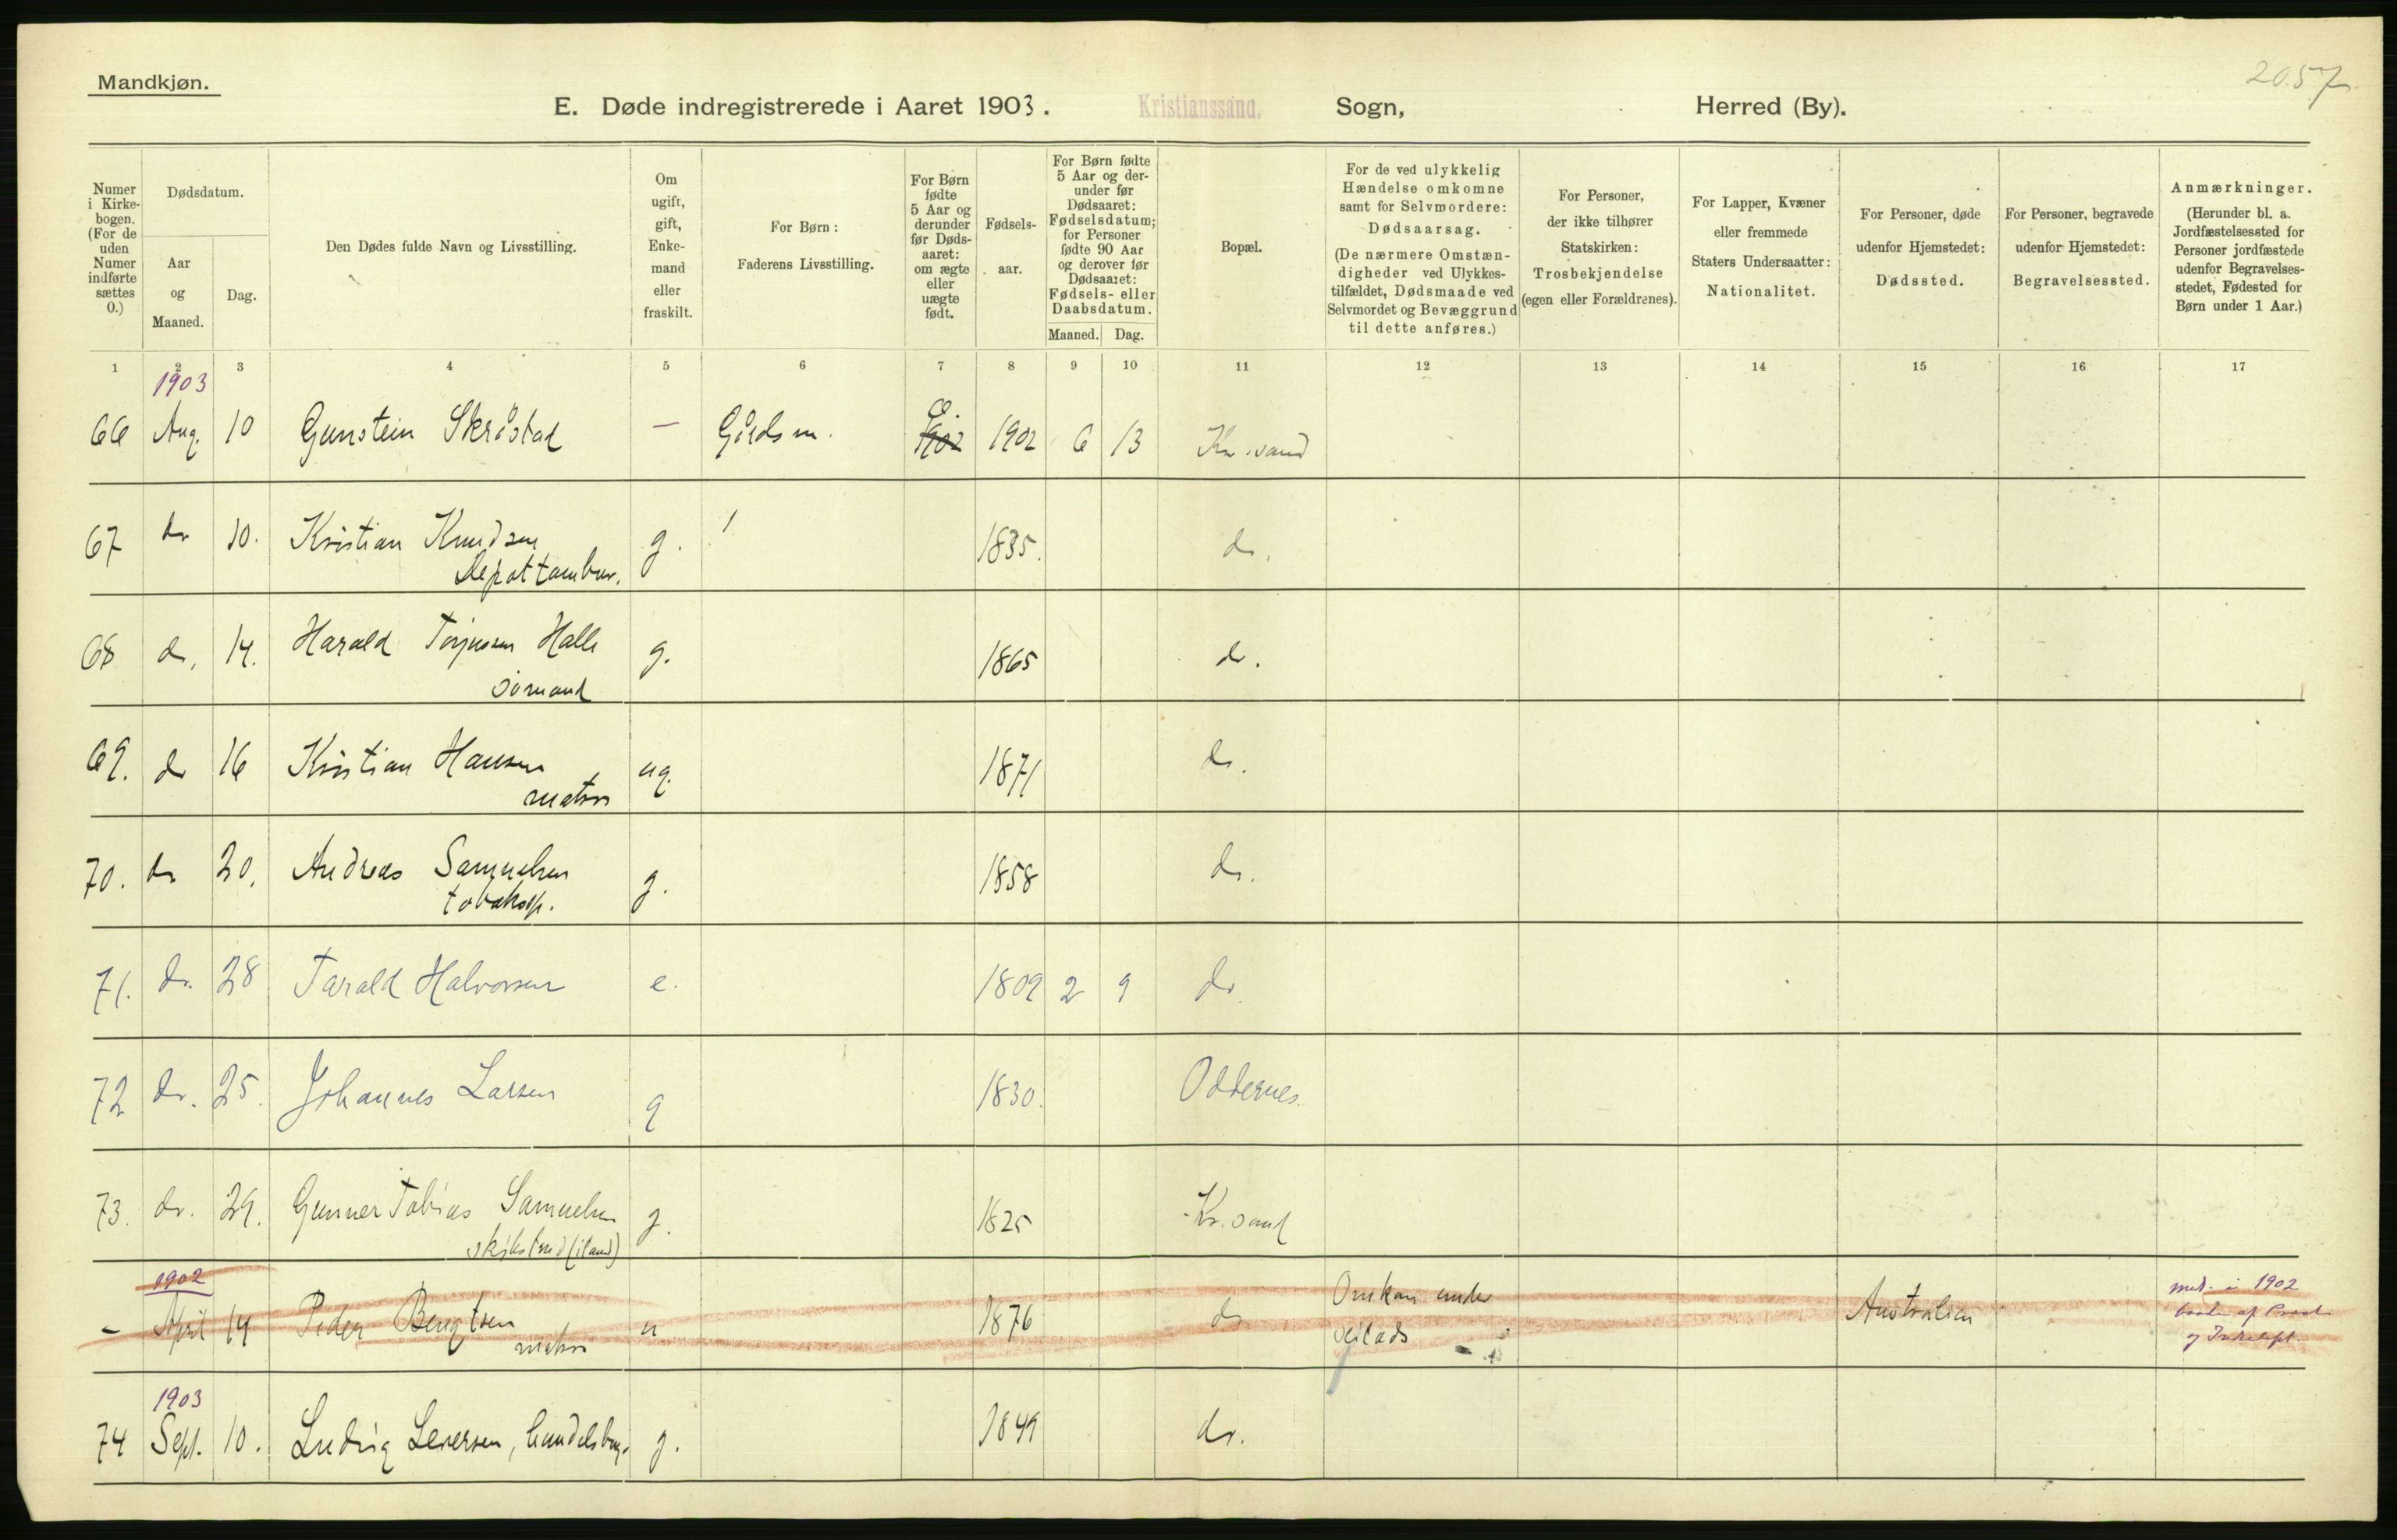 Mandkjøn.
2057
E. Døde indregistrerede i Aaret 1903. Kristianssand. Sogn, Herred (By).
Numer i Kirke-bogen. (For de uden Numer indførte sættes 0.)
Dødsdatum.
Aar og Maaned.
Dag.
Den Dødes fulde Navn og Livsstilling.
Om ugift, gift, Enke-mand eller fraskilt.
For Børn: Faderens Livsstilling.
For Børn fødte 5 Aar og derunder før Døds-aaret: om ægte eller uægte født.
Fødsels-aar.
For Børn fødte 5 Aar og der-under før Dødsaaret: Fødselsdatum; for Personer fødte 90 Aar og derover før Dødsaaret: Fødsels- eller Daabsdatum.
Maaned. Dag.
Bopæl.
For de ved ulykkelig Hændelse omkomne samt for Selvmordere: Dødsaarsag. (De nærmere Omstæn-digheder ved Ulykkes-tilfældet, Dødsmaade ved Selvmordet og Bevæggrund til dette anføres.)
For Personer, der ikke tilhører Statskirken: Trosbekjendelse (egen eller Forældrenes).
For Lapper, Kvæner eller fremmede Staters Undersaatter: Nationalitet.
For Personer, døde udenfor Hjemstedet: Dødssted.
For Personer, begravede udenfor Hjemstedet: Begravelsessted.
Anmærkninger. (Herunder bl. a. Jordfæstelsessted for Personer jordfæstede udenfor Begravelses-stedet, Fødested for Børn under 1 Aar.)
1 2 3 4 5 6 7 8 9 10 11 12 13 14 15 16 17
1903
66 Aug. 10 Gunstein Skråstad — Gårdsm. 1902 1902 6 13 Kr.sand
67 do 10. Kristian Knudsen g. 1835. do.
Depottambur.
68 do. 14. Harald Torjussen Halle g. 1865 do.
sømand
69. do 16 Kristian Hansen ug. 1871 do.
matros
70. do 20. Andreas Samuelsen g. 1858 do.
tobaksp.
71. do. 28 Tarald Halvorsen e. 1809 2 9 do.
72 do. 25. Johannes Larsen g 1830. Oddernes.
73. do. 29. Gunner Tobias Samuelsen g. 1825 Kr.sand
1902
– April 14 Peder Bengtsen u 1876 do Omkom under Australien med. i 1902
matros seilads
1903
74 Sept. 10. Ludvig Seversen, handelsbug. g. 1849 do.